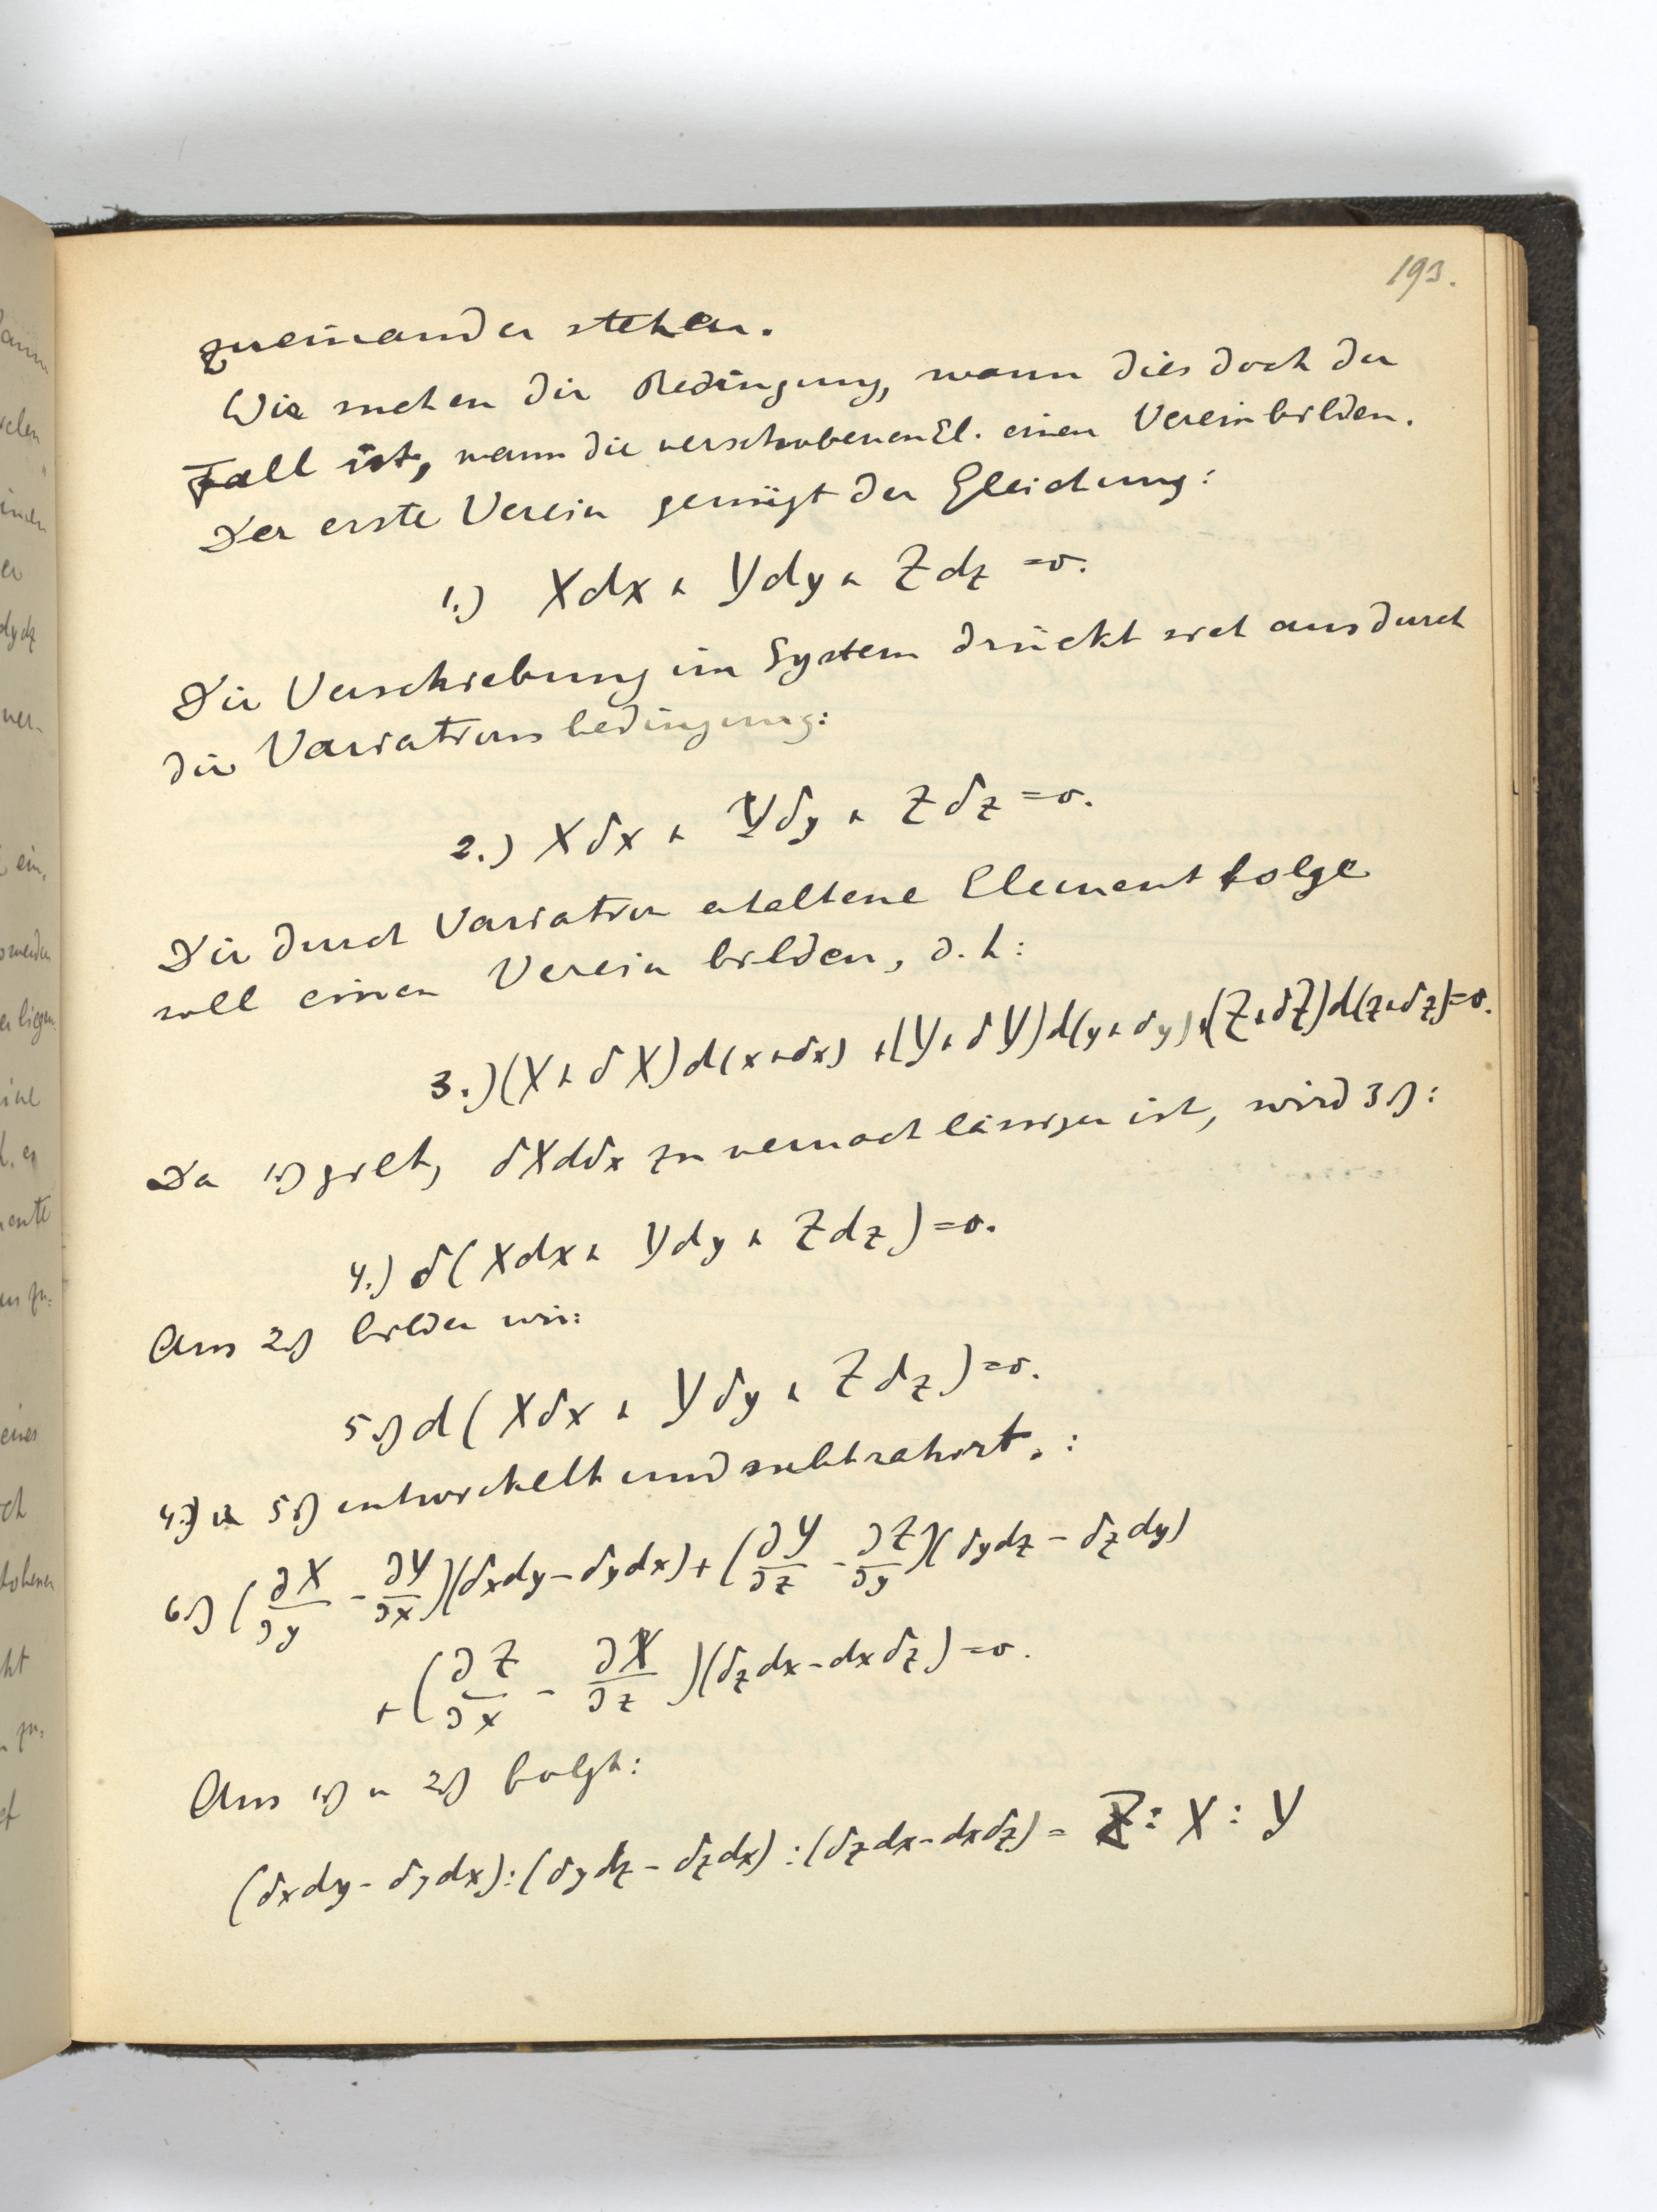 193.
zueinander stehen.
Wir suchen die Bedingung, wann dies doch der
Fall ist, wann die verschobenen El. einen Verein bilden.
Der erste Verein genügt der Gleichung:
1.) Xdx + Ydy + Zdz = 0.
Die Verschiebung im System drückt sich aus durch
die Variationsbedingung:
2.) Xδx + Yδy + Zδz = 0.
Die durch Variation erhaltene Elementfolge
soll einen Verein bilden, d.h:
3.) (X+δX)d(x+δx) + (Y+δY)d(y+δy) + (Z+δZ)d(z+δz) = 0.
Da 1.) gilt, δXdδx zu vernachlässigen ist, wird 3.):
4.) δ(Xdx + Ydy + Zdz) = 0.
Aus 2.) bilden wir:
5.) d(Xδx + Yδy + Zδz) = 0.
4.) u 5.) entwickelt und subtrahirt. :
6.) (∂X/∂y - ∂Y/∂x)(δxdy - δydx) + (∂Y/∂z - ∂Z/∂y)(δydz - δzdy)
+ (∂Z/∂x - ∂X/∂z)(δzdx - dxδz) = 0.
Aus 1.) u 2.) folgt:
(δxdy - δydx) : (δydz - δzdx) : (δzdx - dxδz) = Z : X : Y